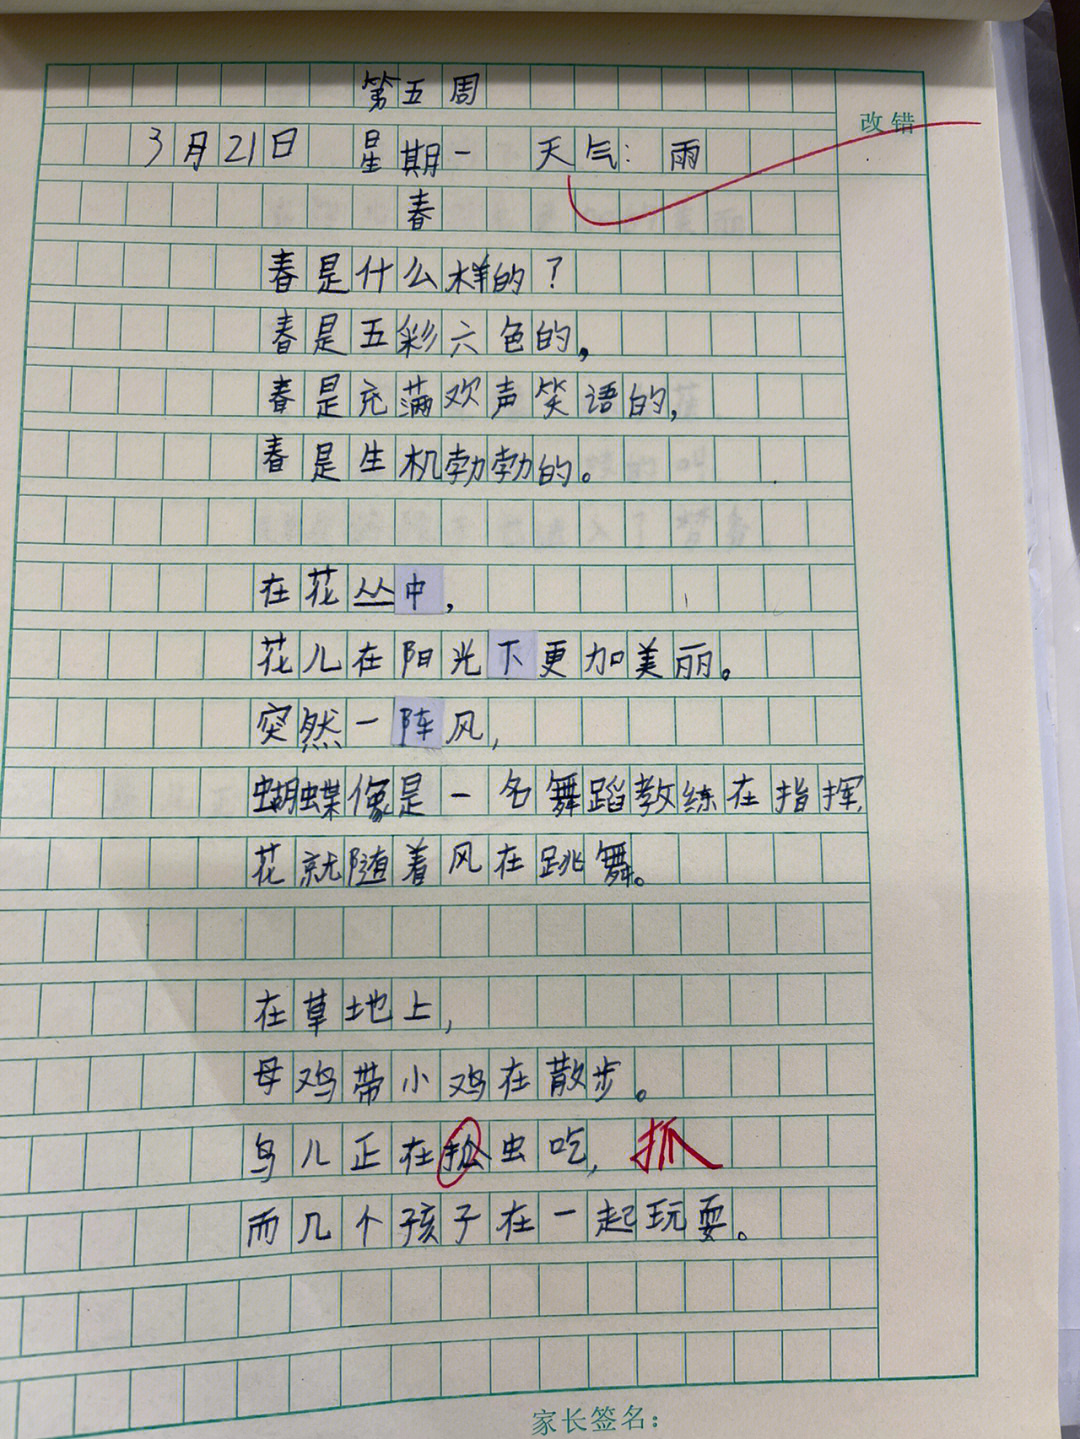 第五周
改错
3月21日 星期一 天气：雨
春
春是什么样的？
春是五彩六色的，
春是充满欢声笑语的，
春是生机勃勃的。
在花丛中，
花儿在阳光下更加美丽。
突然一阵风，
蝴蝶像是一名舞蹈教练在指挥，
花就随着风在跳舞。
在草地上，
母鸡带小鸡在散步。
鸟儿正在抓虫吃， 抓
而几个孩子在一起玩耍。
家长签名：